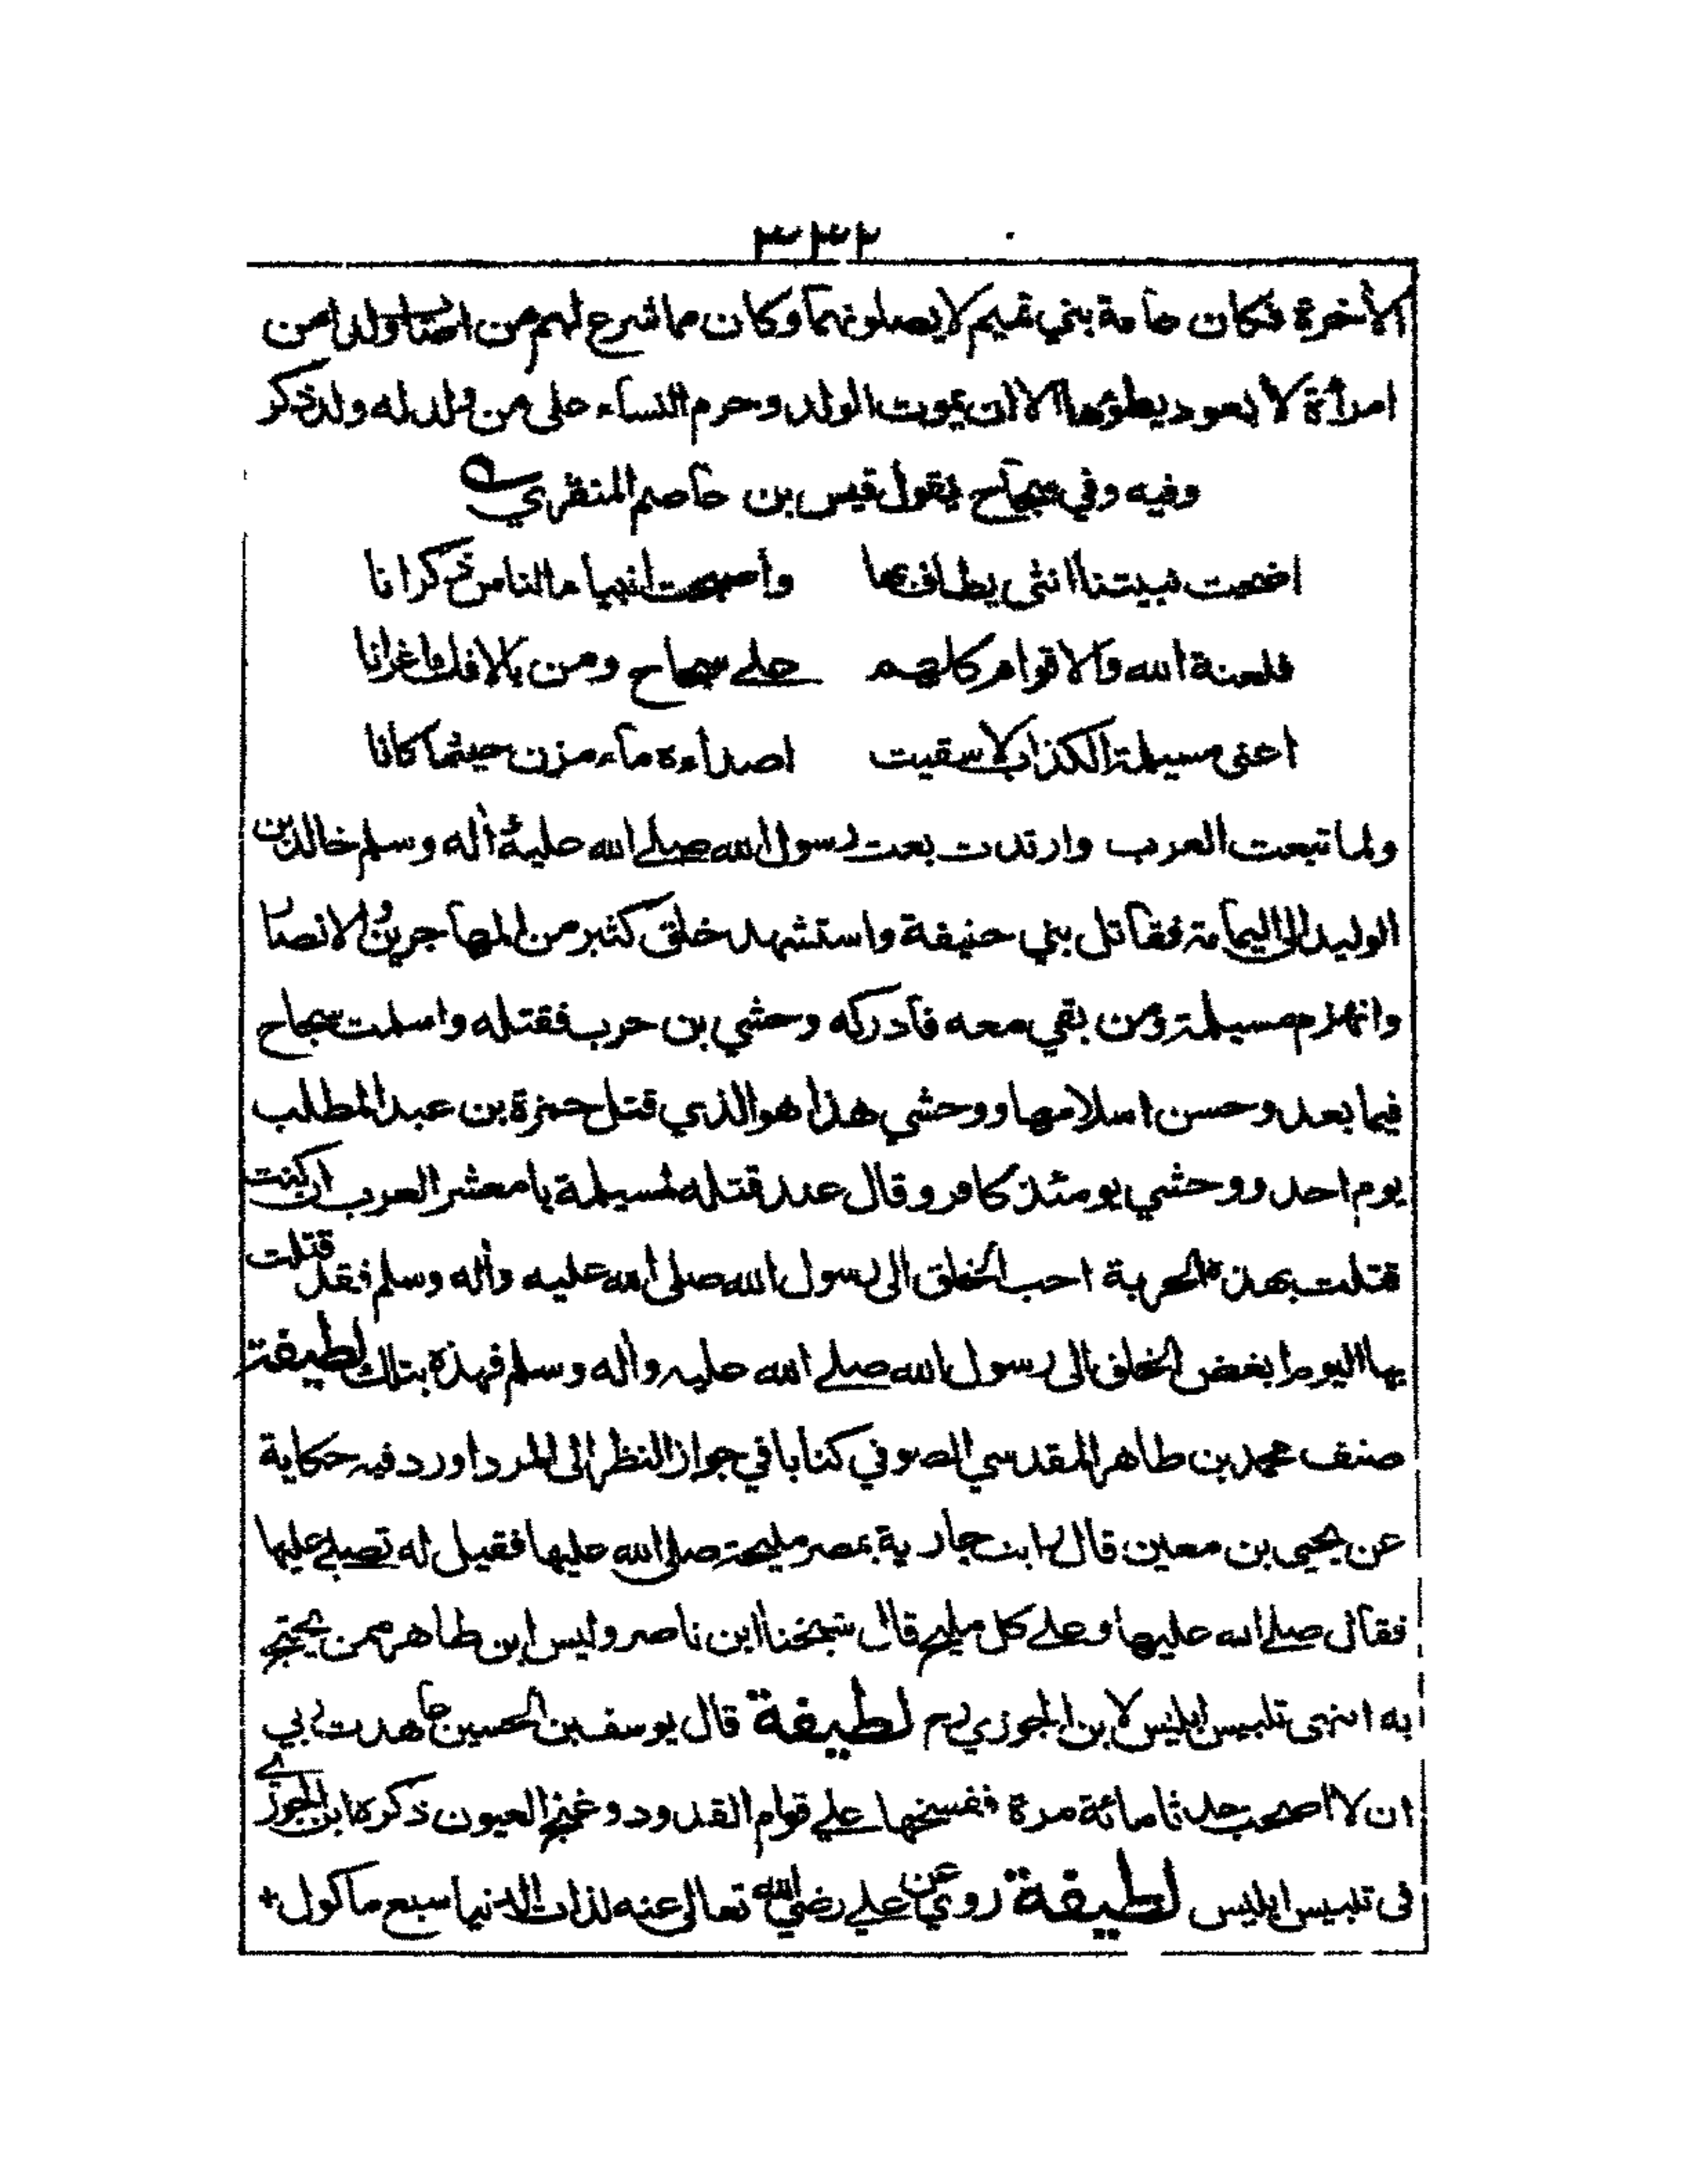 ٣٣٢
الأخرة فكان عامة بني تميم لا يصلونهما وكان مما شرع لهم من اصاب ولدا من
امرأة لا يعود يطؤها الا ان يموت الولد وحرم النساء على من ولد له ولد ذكر
وفيه وفي سجاح يقول قيس بن عاصم المنقري
اضحت نبيتنا انثى يطاف بها وأصبحت انبياء الناس ذكرانا
فلعنة الله والاقوام كلهم علے سجاح ومن بالافك اغرانا
اعنى مسيلمة الكذاب لا سقيت اصداءه ماء مزن حيثما كانا
ولما تبعت العرب وارتدت بعث رسول الله صلے الله عليه وأله وسلم خالد بن
الوليد الى اليمامة فقاتل بني حنيفة واستشهد خلق كثير من المهاجرين والانصار
وانهزم مسيلمة ومن بقي معه فأدركه وحشي بن حرب فقتله واسلمت سجاح
فيما بعد وحسن اسلامها ووحشي هذا هو الذي قتل حمزة بن عبد المطلب
يوم احد ووحشي يومئذ كافر وقال عند قتله لمسيلمة يا معشر العرب ان كنت
قتلت بهذه الحربة احب الخلق الى رسول الله صلى الله عليه وأله وسلم فقد قتلت
بها اليوم ابغض الخلق الى رسول الله صلے الله عليه وأله وسلم فهذه بتلك لطيفة
صنف محمد بن طاهر المقدسي الصوفي كتابا في جواز النظر الى المرد اورد فيه حكاية
عن يحيى بن معين قال رايت جارية بمصر مليحة صلى الله عليها فقيل له تصلے عليها
فقال صلے الله عليها وعلے كل مليح قال شيخنا ابن ناصر وليس ابن طاهر ممن يحتج
به انتهى تلبيس ابليس لابن الجوزي رح لطيفة قال يوسف بن الحسين عاهدت ربي
ان لا اصحب حدثا مائة مرة ففسخها علے قوام القدود وغنج العيون ذكره ابن الجوزے
فى تلبيس ابليس لطيفة روي عن علے رضي الله تعالى عنه لذات الدنيا سبع ماكول